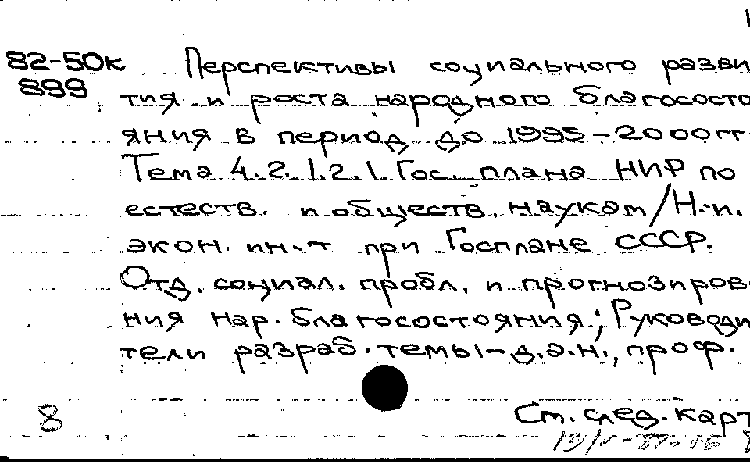 82-50к Перспективы социального разви
899 тия и роста народного благососто
яния в период до 1995-2000гг
Тема 4.2.1.2.1. Гос. плана НИР по
естеств. и обществ. наукам/Н.-и.
экон. ин-т при Госплане СССР.
Отд. социал. пробл. и прогнозирова
ния нар. благосостояния; Руководи
тели разраб. темы-д.э.н., проф.
8 Ст. след. карт